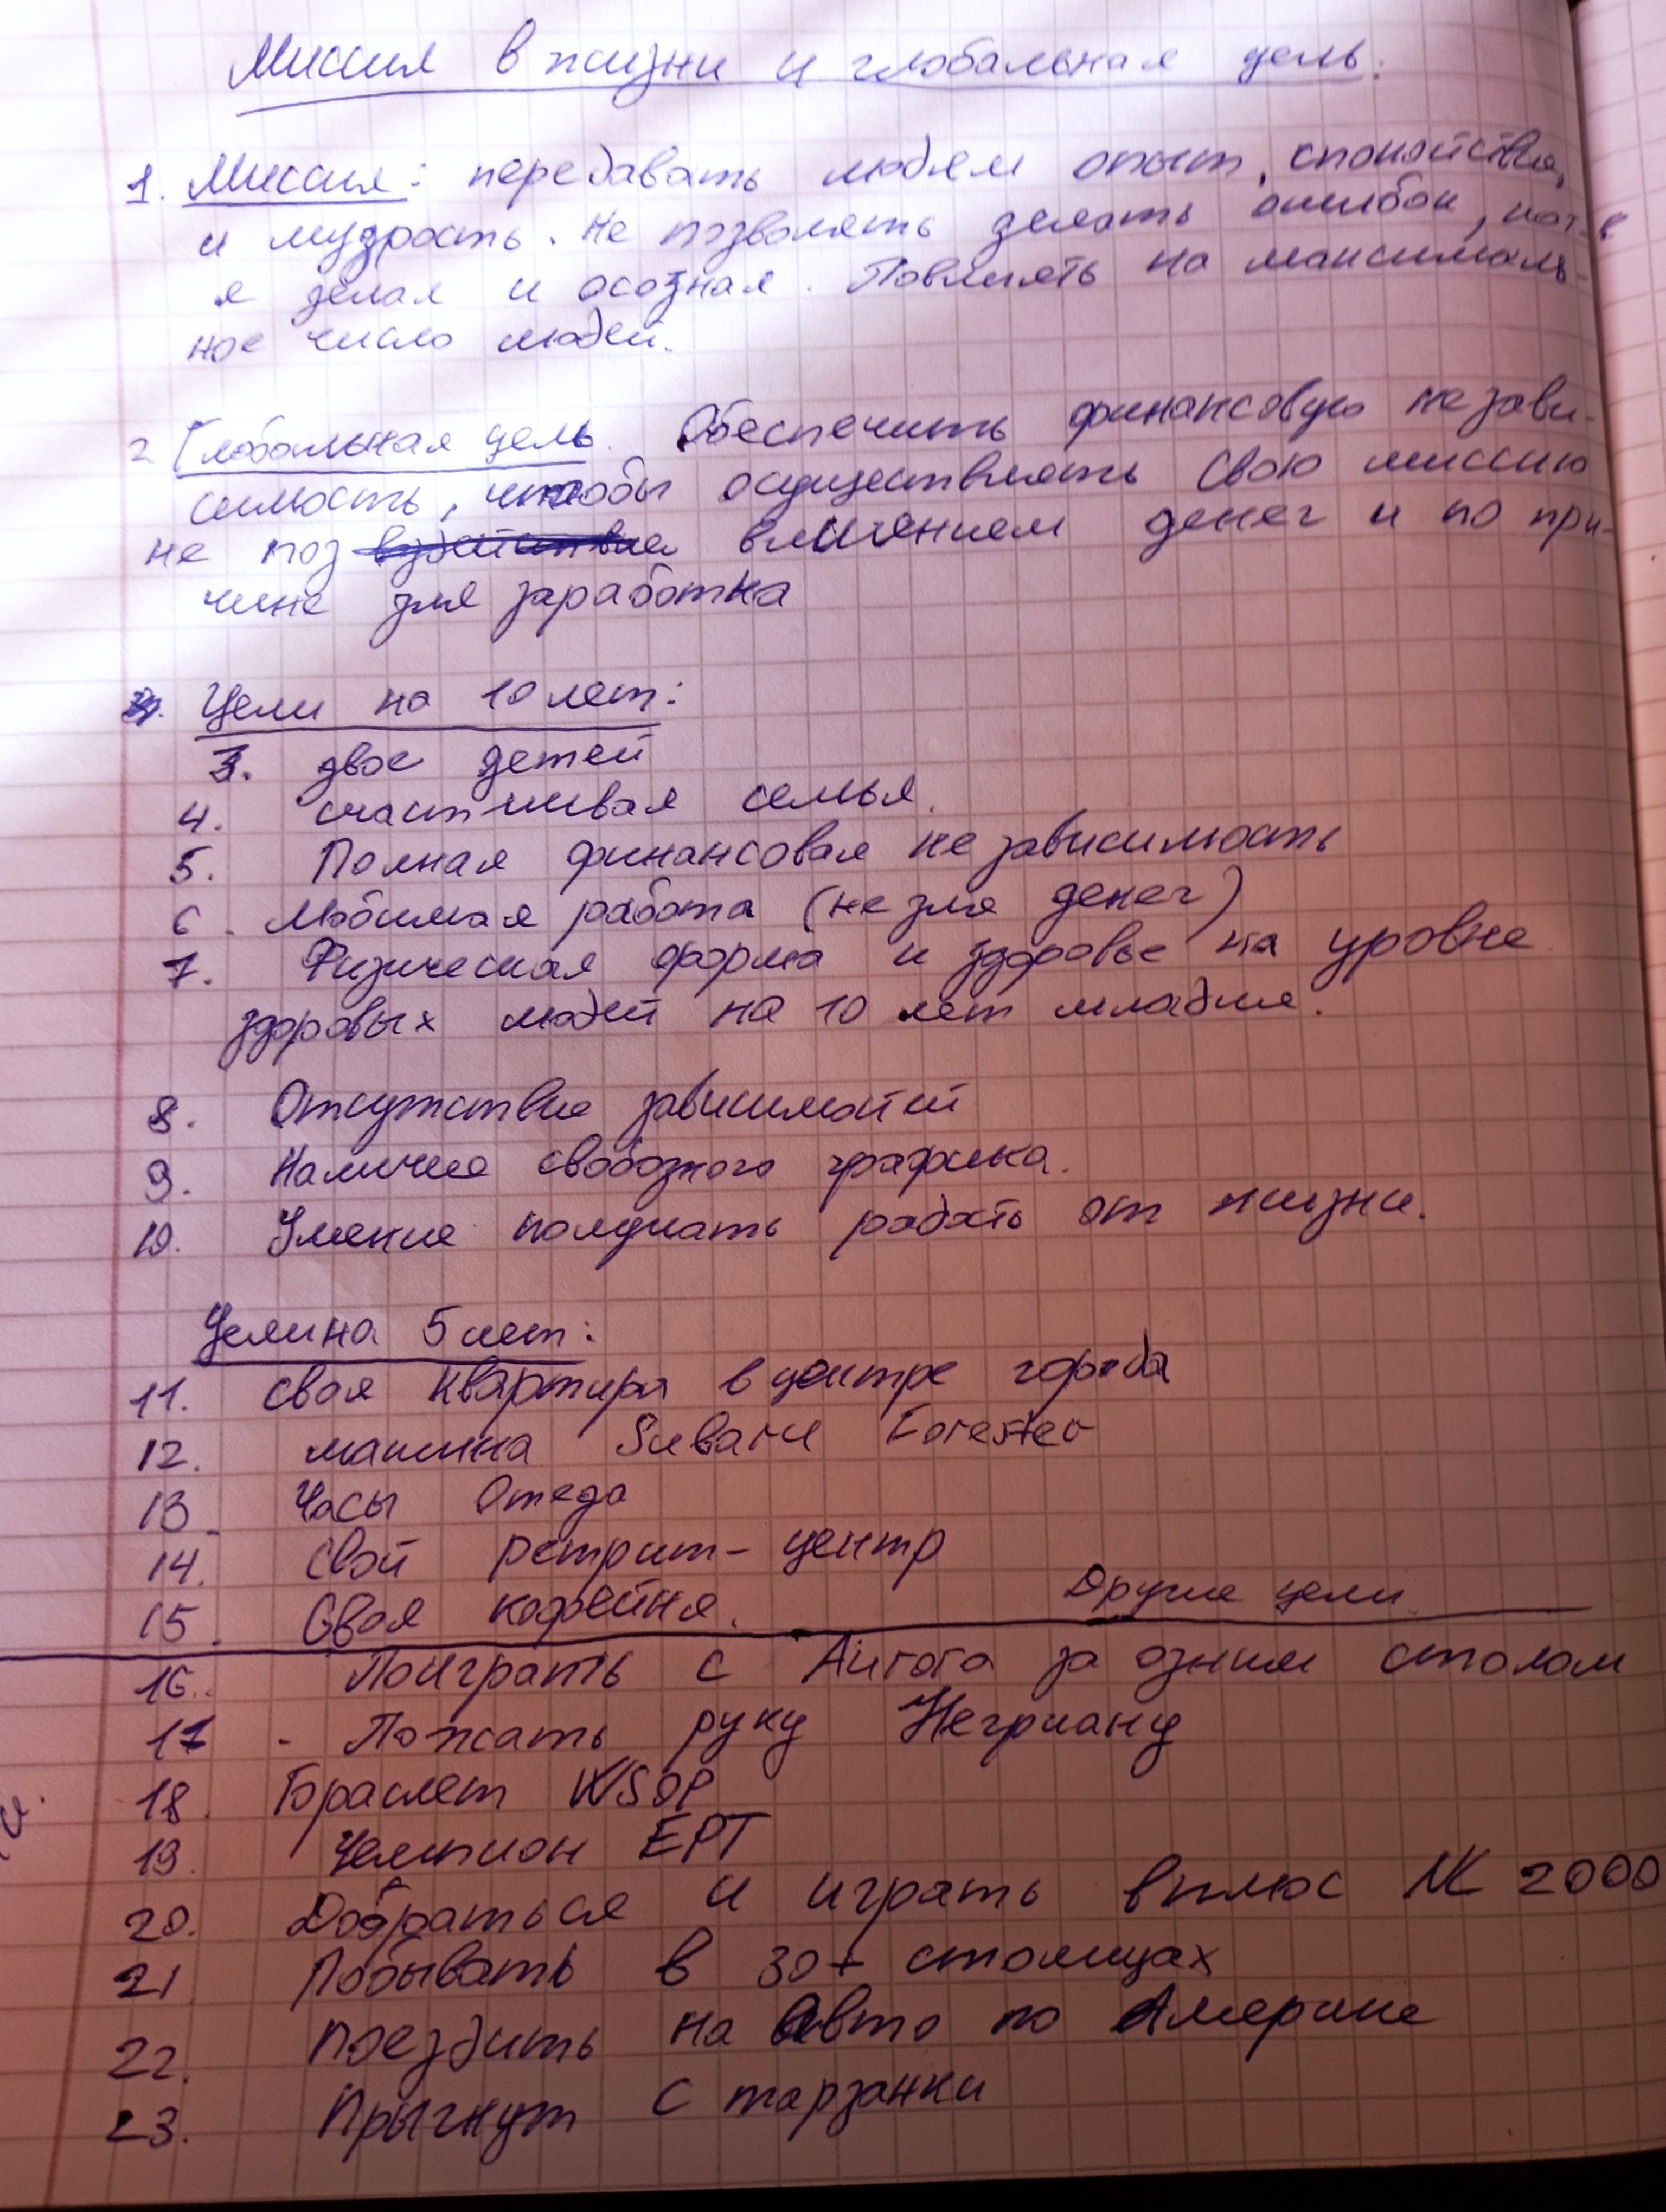 Миссия в жизни и глобальная цель:
1. Миссия: передавать людям опыт, спокойствие,
и мудрость. Не позволять делать ошибок,
я делал и осознал. Повлиять на максималь-
ное число людей.
2. Глобальная цель. Обеспечить финансовую незави-
симость, чтобы осуществлять свою миссию
не поз влиянием денег и по при-
чине для заработка
Цели на 10 лет:
3. двое детей
4. счастливая семья.
5. Полная финансовая независимость
6. Любимая работа (не для денег)
7. Физическая форма и здоровье на уровне
здоровых людей на 10 лет младше.
8. Отсутствие зависимостей
9. Наличие свободного графика.
10. Умение получать радость от жизни.
Цели на 5 лет:
11. своя квартира в центре города
12. машина Subaru Forester
13. Часы Омега
14. Свой ретрит-центр
15. Своя кофейня.
Другие цели
16. Поиграть с Airoга за одним столом
17. - Пожать руку Негриану
18. Браслет WSOP
19. Чемпион EPT
20. Добраться и играть в плюс NL 2000
21 Побывать в 30+ столицах
22. поездить на авто по Америке
23. Прыгнут с тарзанки